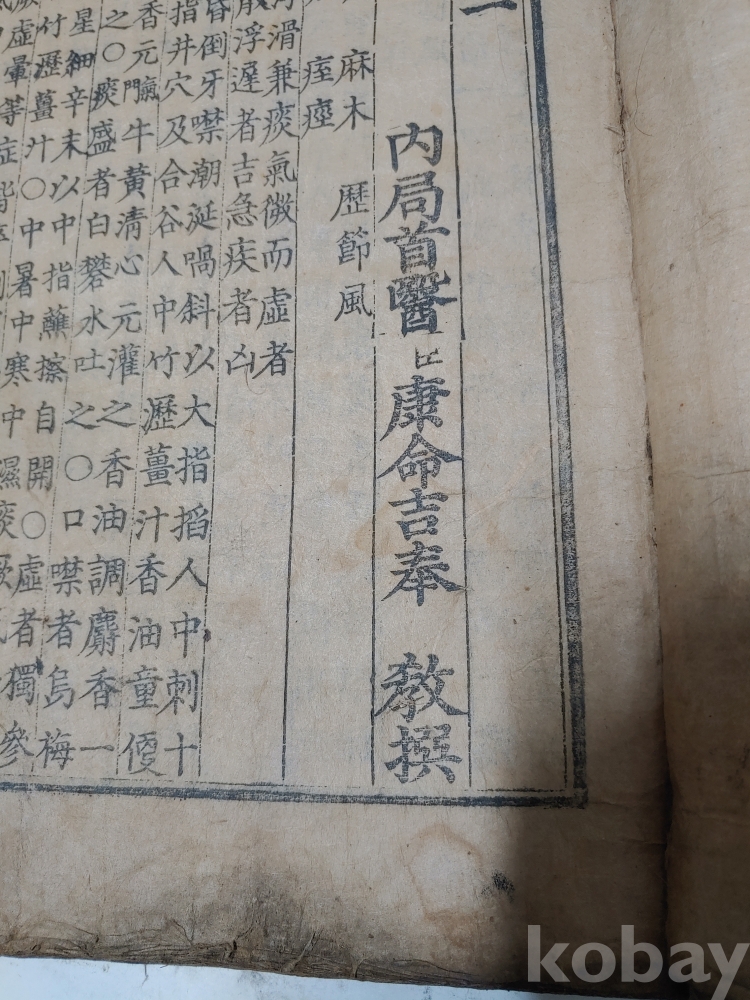 一
內局首醫臣康命吉奉 敎撰
麻木 歷節風
痓痙
浮滑兼痰氣微而虛者
散浮遲者吉急疾者凶
昏倒牙噤潮涎喎斜以大指掐人中刺十
指井穴及合谷人中竹瀝薑汁香油童便
香元臈牛黃清心元灌之香油調麝香一
之〇痰盛者白礬水吐之〇口噤者烏梅
星細辛末以中指蘸擦自開〇虛者獨參
竹瀝薑汁〇中暑中寒中濕痰厥
虛暈等症皆
kobay